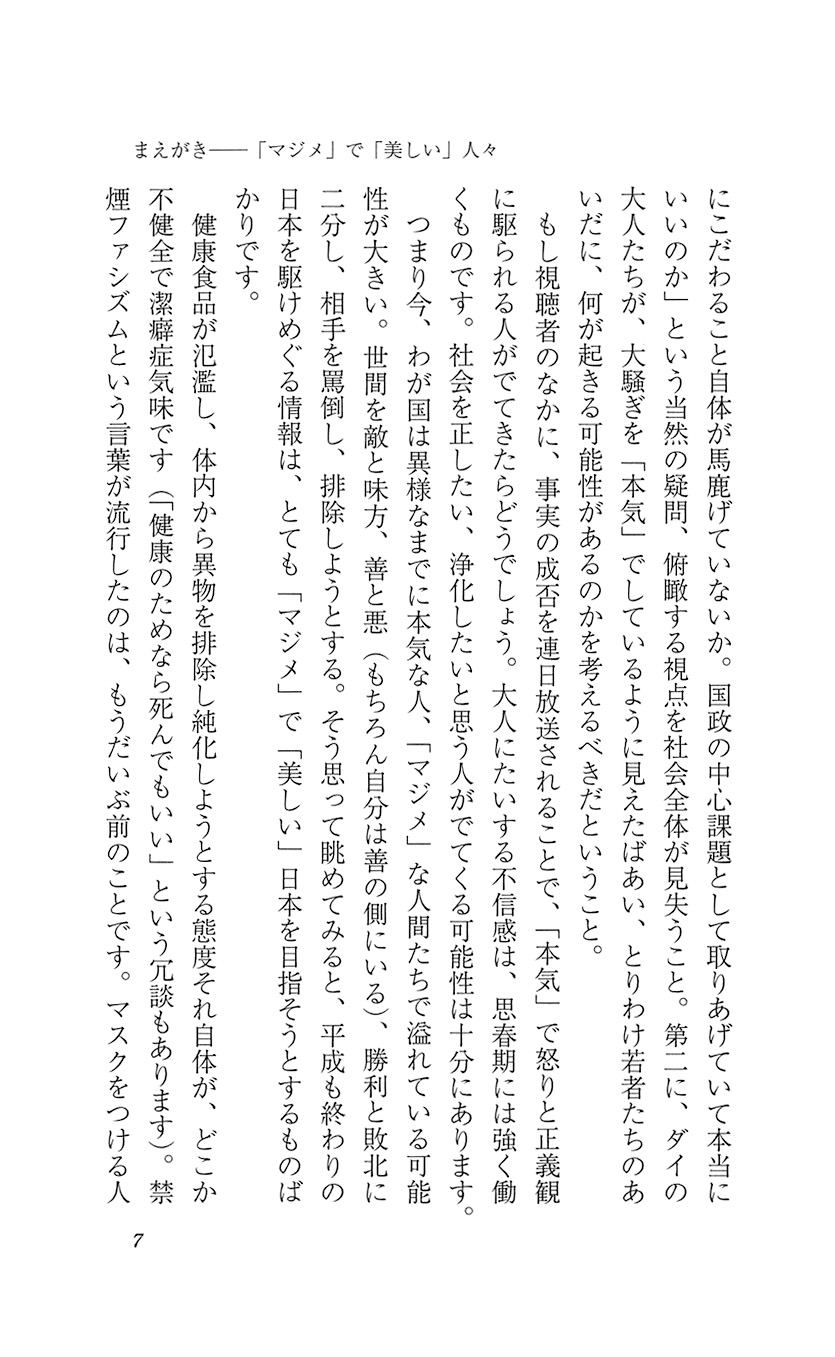 まえがき――「マジメ」で「美しい」人々
にこだわること自体が馬鹿げていないか。国政の中心課題として取りあげていて本当に
いいのか」という当然の疑問、俯瞰する視点を社会全体が見失うこと。第二に、ダイの
大人たちが、大騒ぎを「本気」でしているように見えたばあい、とりわけ若者たちのあ
いだに、何が起きる可能性があるのかを考えるべきだということ。
もし視聴者のなかに、事実の成否を連日放送されることで、「本気」で怒りと正義観
に駆られる人がでてきたらどうでしょう。大人にたいする不信感は、思春期には強く働
くものです。社会を正したい、浄化したいと思う人がでてくる可能性は十分にあります。
つまり今、わが国は異様なまでに本気な人、「マジメ」な人間たちで溢れている可能
性が大きい。世間を敵と味方、善と悪（もちろん自分は善の側にいる）、勝利と敗北に
二分し、相手を罵倒し、排除しようとする。そう思って眺めてみると、平成も終わりの
日本を駆けめぐる情報は、とても「マジメ」で「美しい」日本を目指そうとするものば
かりです。
健康食品が氾濫し、体内から異物を排除し純化しようとする態度それ自体が、どこか
不健全で潔癖症気味です（「健康のためなら死んでもいい」という冗談もあります）。禁
煙ファシズムという言葉が流行したのは、もうだいぶ前のことです。マスクをつける人
7